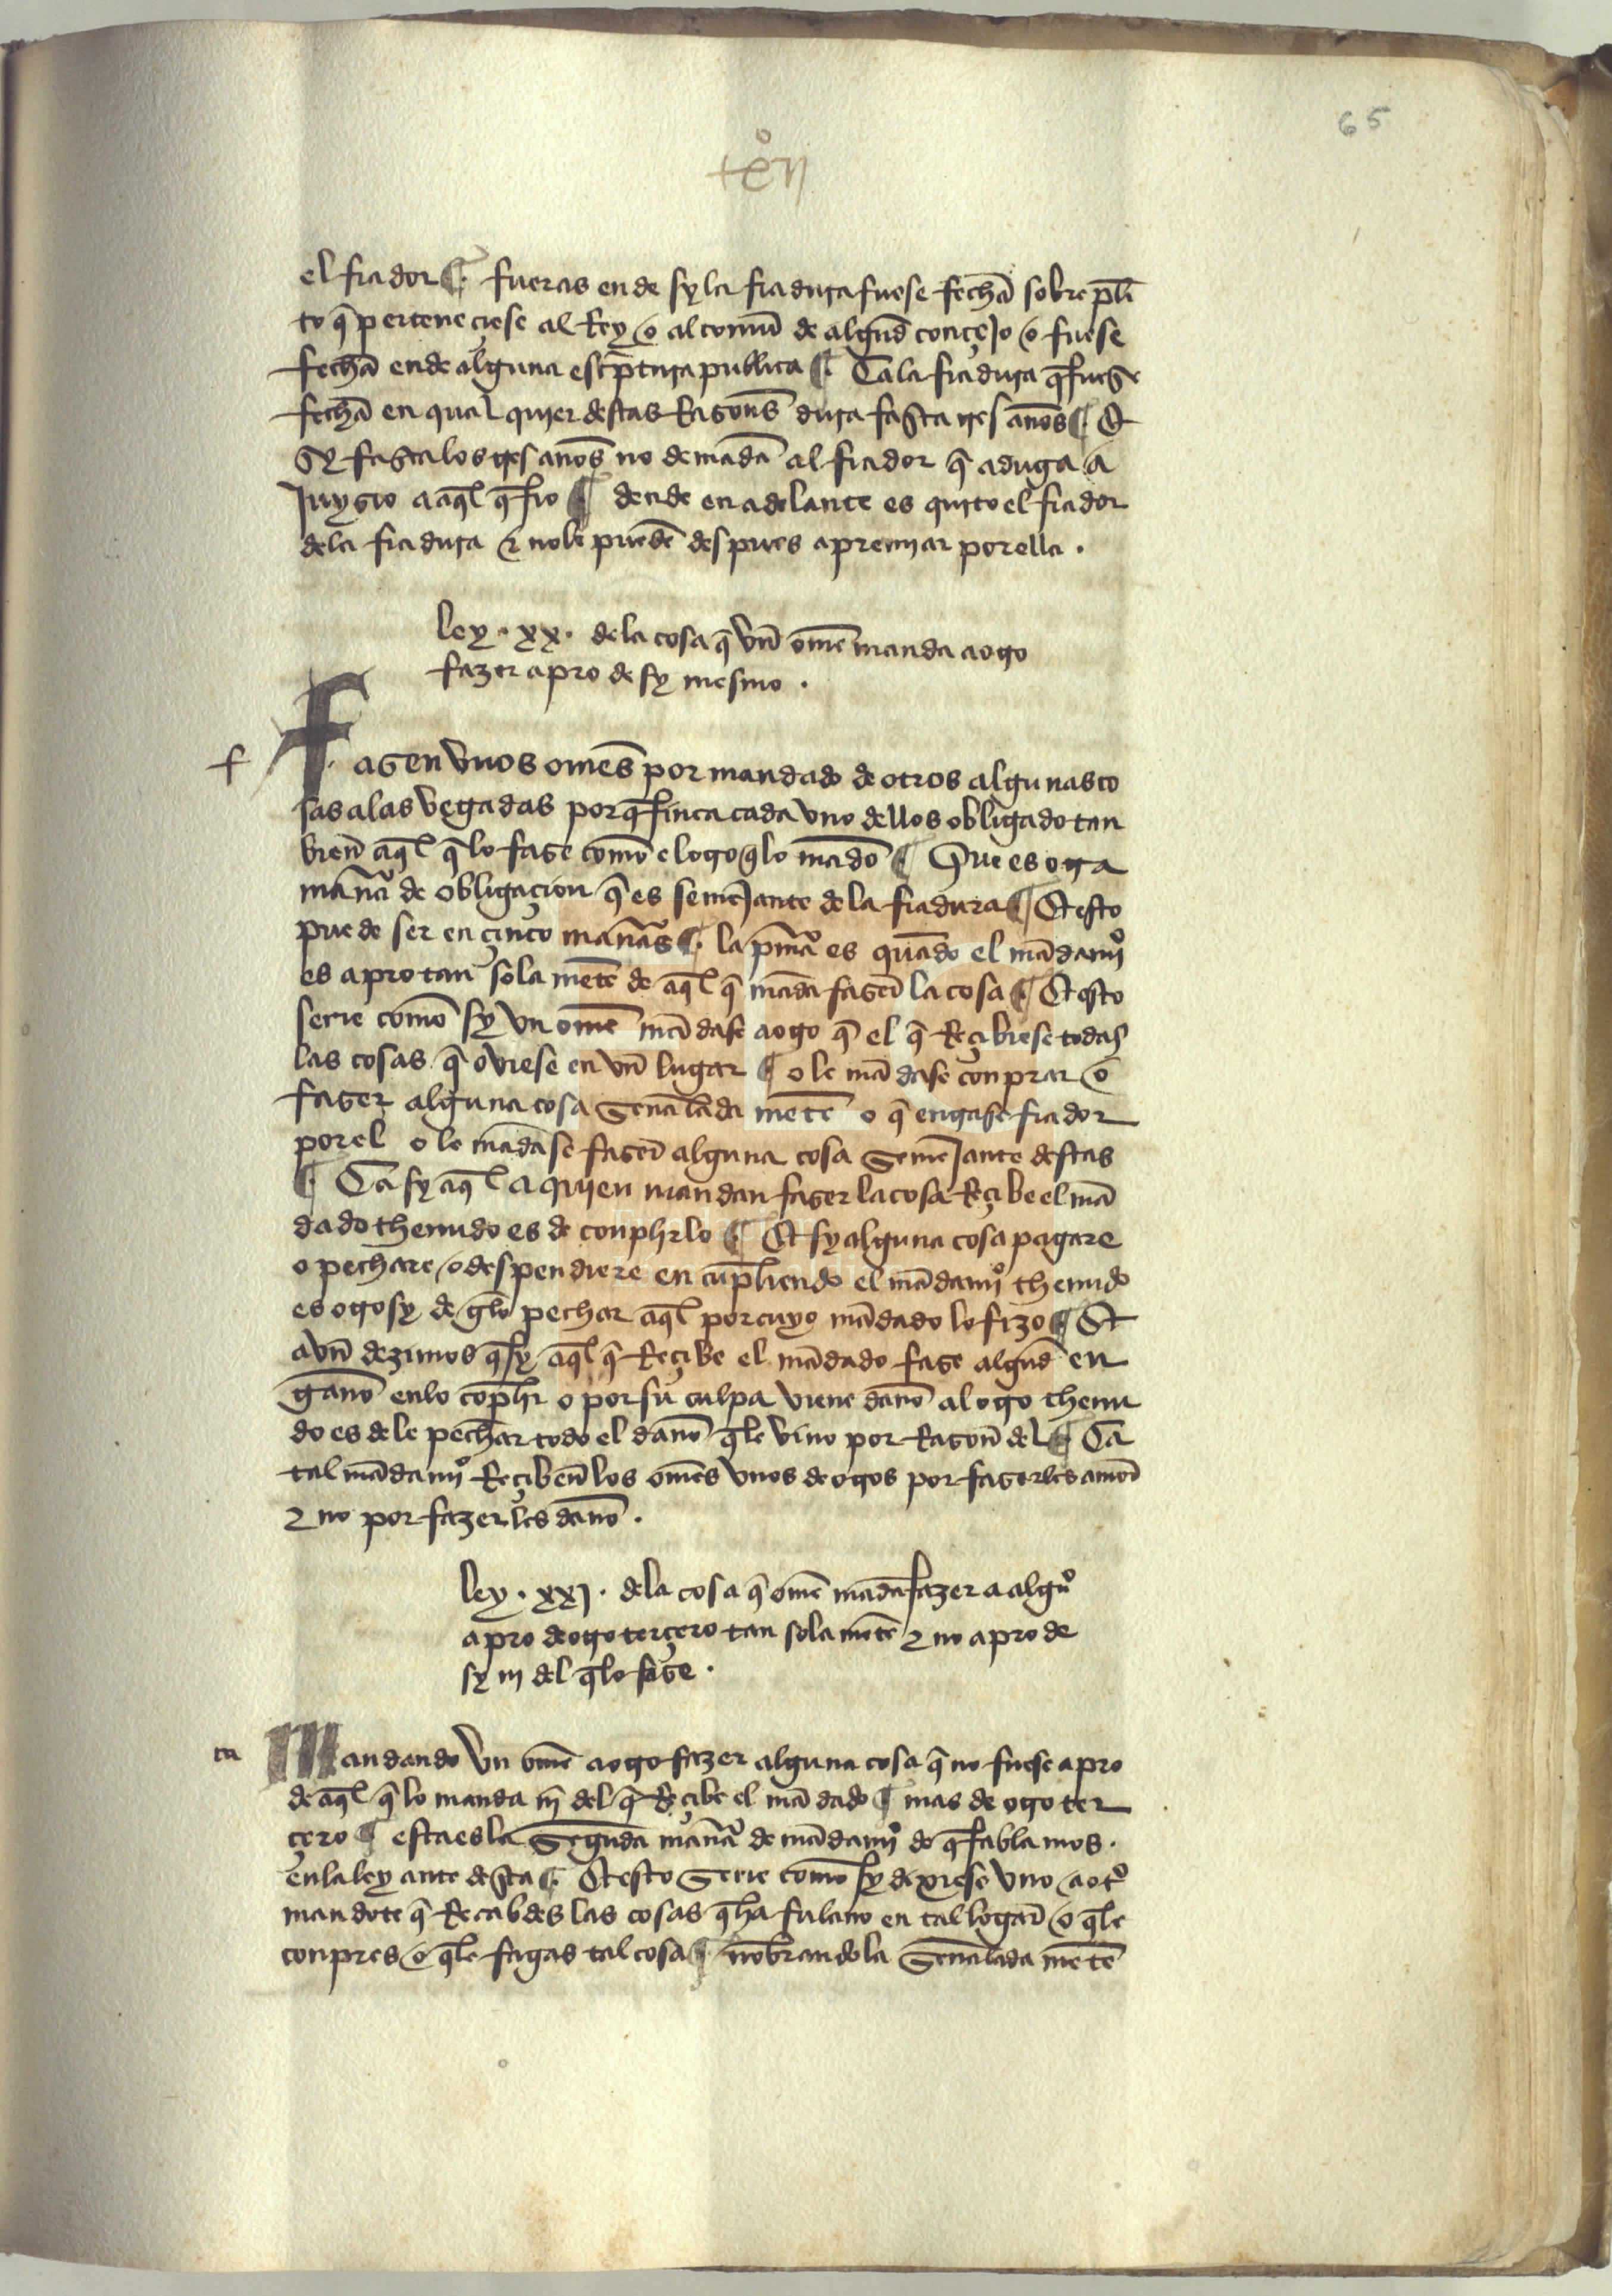 65
el fiador ¶ fueras ende sy la fiadura fuese fechã sobre pl̃i
to q̃ perteneçiese al Rey o al comũ de algũd conçejo o fuese
fechã ende alguna esc̃ptura publica ¶ Ca la fiadura q̃ fuese
fechã en qual quier destas Rasoñs dura fasta tres años ¶ Et
sy fasta los tres años no demãdã al fiador q̃ aduga a
juyzio a aq̃l q̃ fio ¶ dende en adelante es quito el fiador
dela fiadura & nole puedẽ despues apremiar por ella .
ley . xx . dela cosa q̃ vñ om̃e manda a otro
fazer a pro de sy mesmo .
f
Fasen vnos om̃es por mandado de otros algunas co
sas alas vegadas por q̃ finca cada vno dellos obligado tan
bieñ aq̃l q̃ lo fase com̃o el otro q̃ lo mãdo ¶ Que es otra
mañã de obligaçion q̃ es semejante de la fiadura ¶ Et esto
puede ser en çinco mañãs ¶ la p̃mã es quãdo el mãdamº
es a pro tan sola mẽte de aq̃l q̃ mãda faser̃ la cosa ¶ Et esto
serie com̃o sy vn om̃e mãdase a otro q̃ el q̃ Reçibiese todas
las cosas q̃ oviese en vñ lugar ¶ o le mãdase conprar o
faser alguna cosa señalada mẽte o q̃ entrase fiador
por el o le mãdase faser̃ alguna cosa semejante destas
¶ Ca sy aq̃l a quien mandan faser la cosa Reçibe el mã
dado thenudo es de conplirlo ¶ Et sy alguna cosa pagare
o pechare o despendiere en cũpliendo el mãdamº thenudo
es otrosy de gelo pechar aq̃l por cuyo mãdado lo fizo ¶ Et
avñ dezimos q̃ sy aq̃l q̃ Reçibe el mãdado fase algũd en
gaño enlo cõplir o por su culpa viene daño al otro thenu
do es de le pechar todo el daño q̃le vino por Rasoñ del ¶ Ca
tal mãdamº Reçibeñ los om̃es vnos de otros por faserles amor̃
& no por fazerles daño .
ley . xxj . dela cosa q̃ om̃e mãda fazer a algũº
a pro de otro terçero tan sola mẽte & no a pro de
sy ni del q̃lo fase .
m
Mandando vn om̃e a otro fazer alguna cosa q̃ no fuese a pro
de aq̃l q̃ lo manda ni del q̃ Reçibe el mãdado ¶ mas de otro ter
çero ¶ esta es la segunda mañã de mãdamº de q̃ fablamos .
enla ley ante desta ¶ Et esto serie com̃o sy dixiese vno a otº
mandote q̃ Recabdes las cosas q̃ ha fulano en tal logar̃ o q̃le
conpres o q̃le fagas tal cosa ¶ nõbrandola señalada mẽte